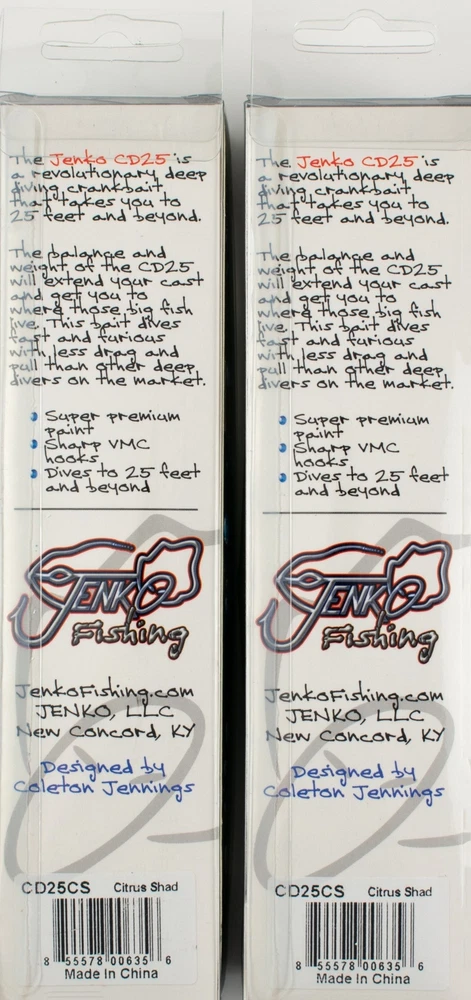 The Jenko CD25 is
a revolutionary deep
diving crankbait
that takes you to
25 feet and beyond.
The balance and
weight of the CD25
will extend your cast
and get you to
where those big fish
live. This bait dives
fast and furious
with less drag and
pull than other deep
divers on the market.
Super premium
paint
Sharp VMC
hooks
Dives to 25 feet
and beyond
JENKO
Fishing
JenkoFishing.com
JENKO, LLC
New Concord, KY
Designed by
Coleton Jennings
CD25CS Citrus Shad
8 55578 00635 6
Made In China
The Jenko CD25 is
a revolutionary deep
diving crankbait
that takes you to
25 feet and beyond.
The balance and
weight of the CD25
will extend your cast
and get you to
where those big fish
live. This bait dives
fast and furious
with less drag and
pull than other deep
divers on the market.
Super premium
paint
Sharp VMC
hooks
Dives to 25 feet
and beyond
JENKO
Fishing
JenkoFishing.com
JENKO, LLC
New Concord, KY
Designed by
Coleton Jennings
CD25CS Citrus Shad
8 55578 00635 6
Made In China